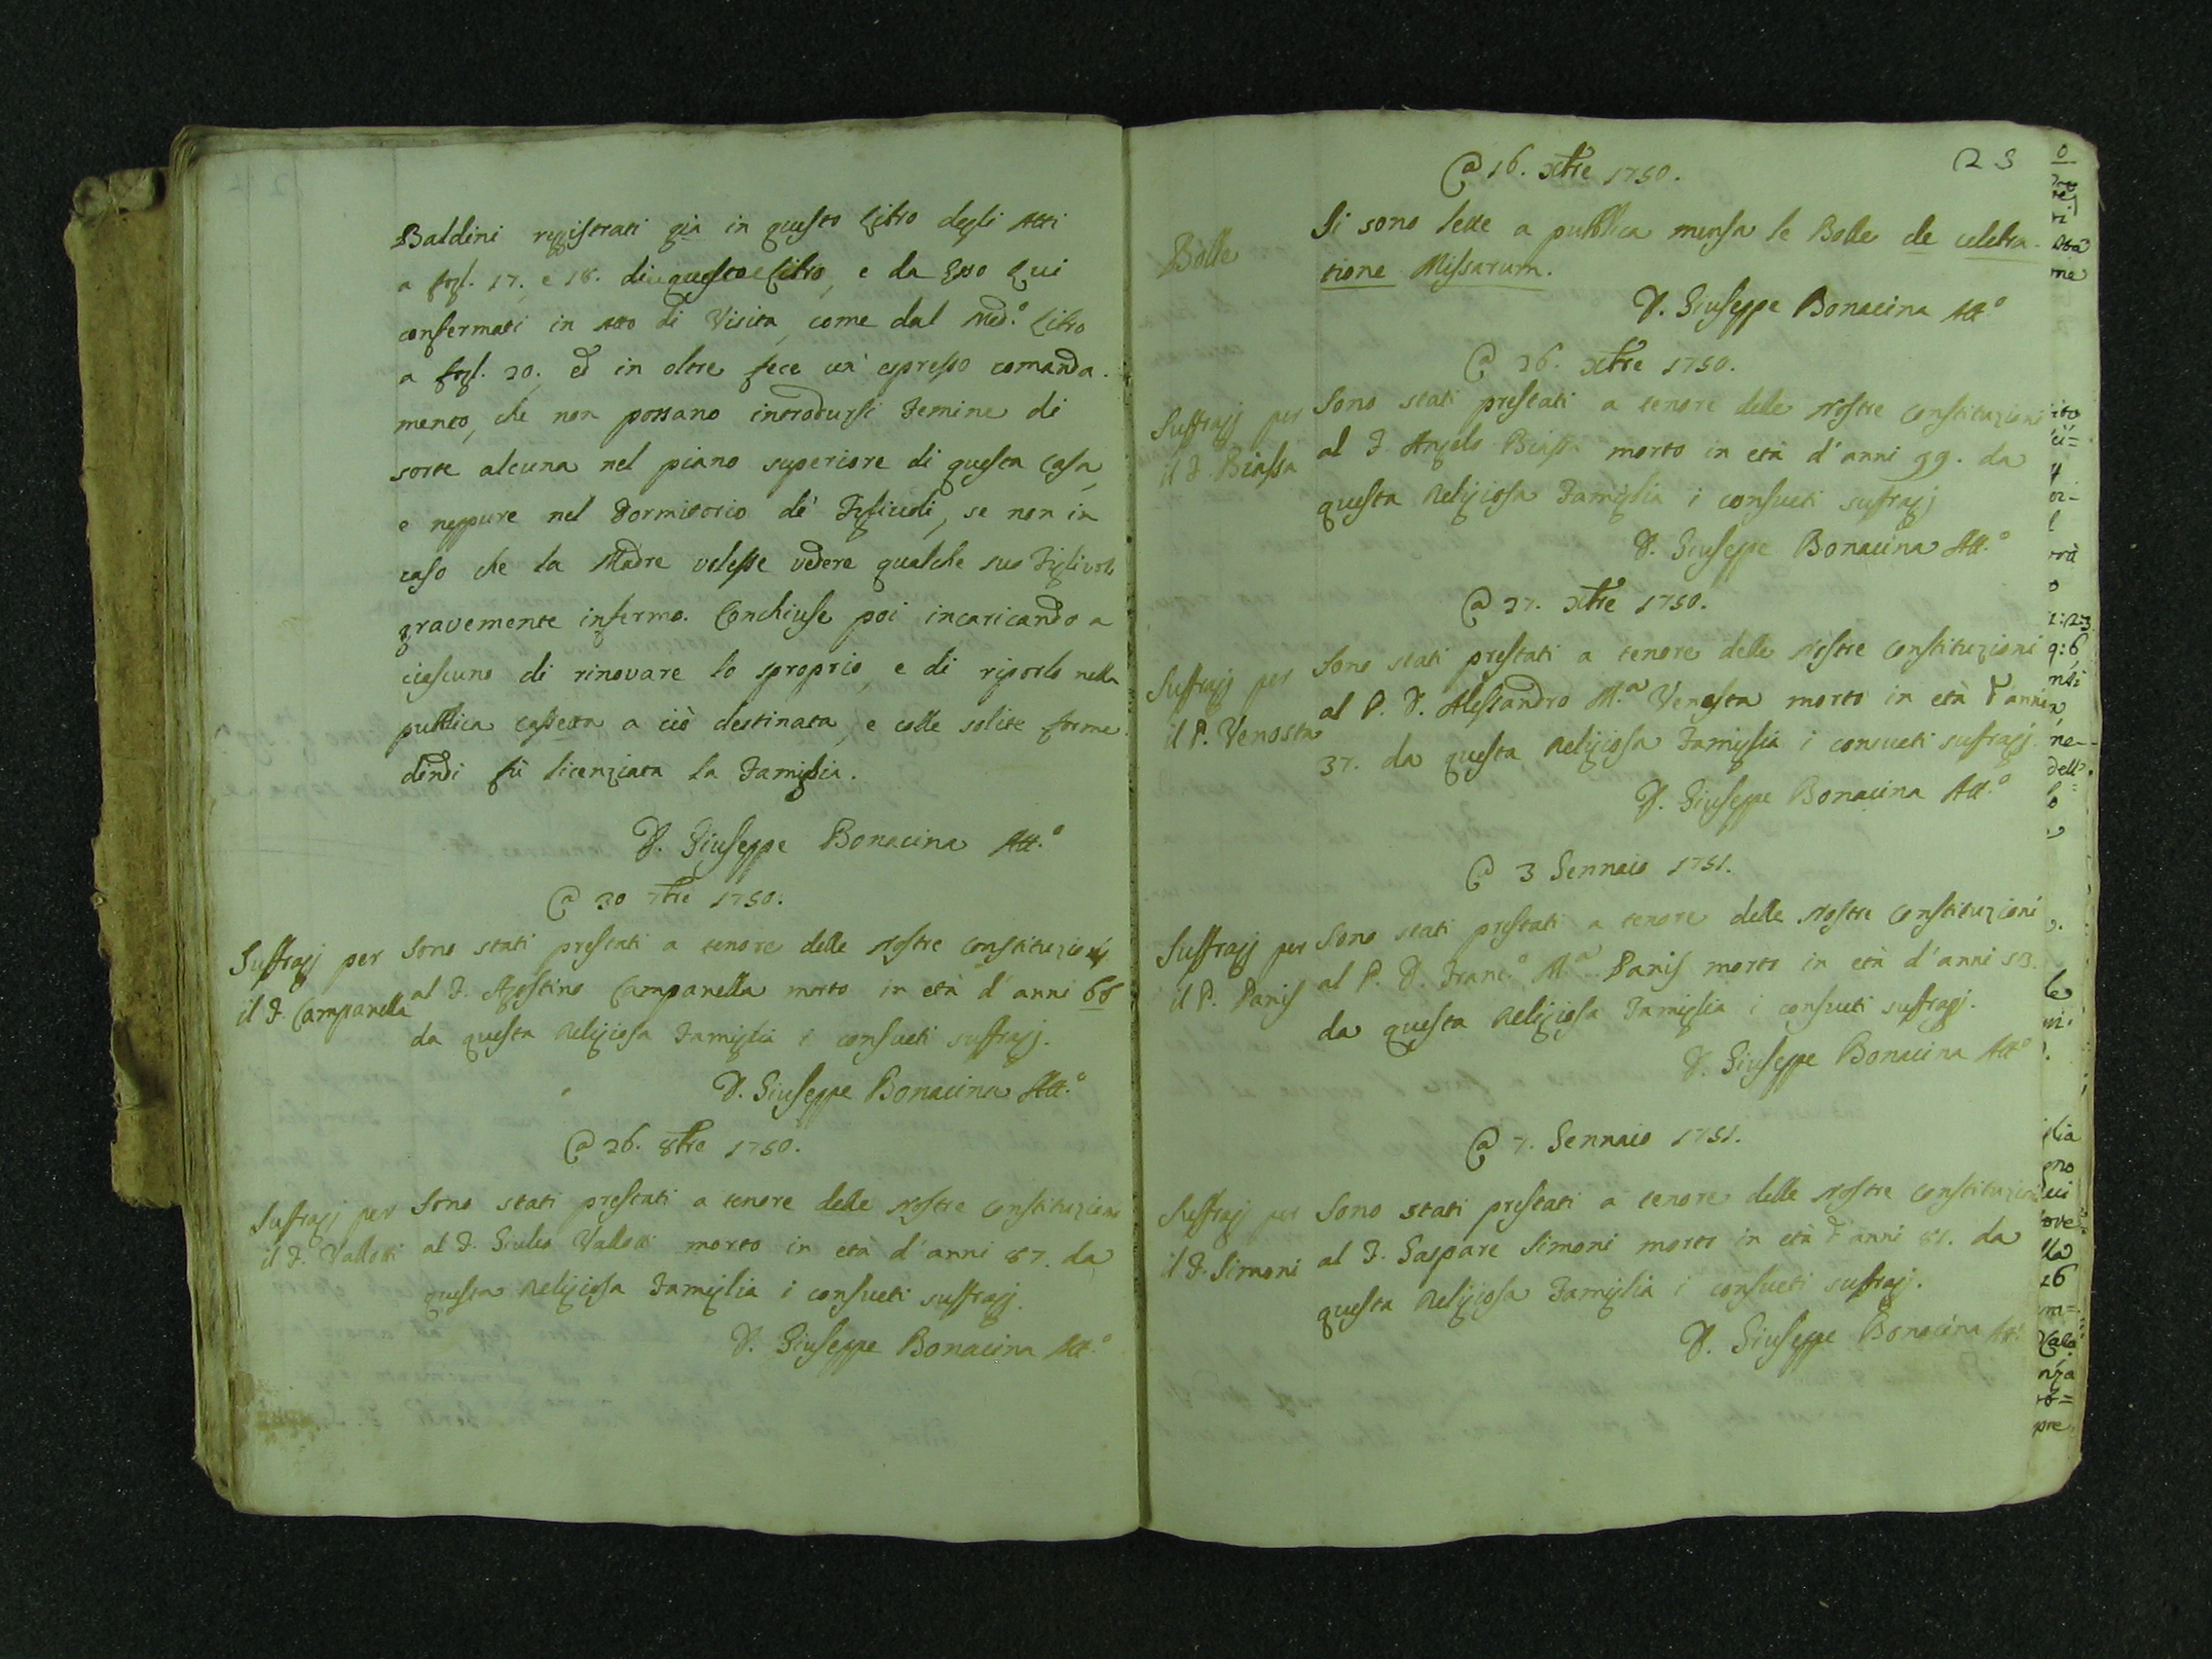 Baldini reggistrati già in questo Libro degli Atti
a fogl. 17. e 18. di questo Libro, e da Esso qui
confermati in Atto di Visita, come dal Med.º Libro
a fogl. 20. ed in oltre fece un' espresso comanda-
mento, che non possano introdursi Femine di
sorte alcuna nel piano superiore di questa Casa,
e neppure nel Dormitorio de' Figliuoli, se non in
caso che la Madre volesse vedere qualche suo Figliuolo
gravemente infermo. Conchiuse poi incaricando a
ciascuno di rinovare lo sproprio, e di riporlo nella
pubblica cassetta a ciò destinata, e colle solite forme
dindi fù licenziata la Famiglia.
D. Giuseppe Bonacina Att.º
@ 30 7bre 1750.
Suffragj per
il F. Campanella
Sono stati prestati a tenore delle Nostre Constituzioni
al F. Agostino Campanella morto in età d'anni 68
da questa Religiosa Famiglia i consueti suffragj.
D. Giuseppe Bonacina Att.º
@ 26. 8bre 1750.
Suffragj per
il F. Vallotti
Sono stati prestati a tenore delle Nostre Constituzioni
al F. Giulio Vallotti morto in età d'anni 87. da
questa Religiosa Famiglia i consueti suffragj.
D. Giuseppe Bonacina Att.º
@ 16. Xbre 1750.
25
Bolle
Si sono lette a pubblica mensa le Bolle de celebra-
tione Missarum.
D. Giuseppe Bonacina Att.º
@ 26. Xbre 1750.
Suffragj per
il F. Biassa
Sono stati prestati a tenore delle Nostre Constituzioni
al F. Angelo Biassa morto in età d'anni 99. da
questa Religiosa Famiglia i consueti suffragj
D. Giuseppe Bonacina Att.º
@ 27. Xbre 1750.
Suffragj per
il P. Venosta
Sono stati prestati a tenore delle Nostre Constituzioni
al P. D. Alessandro M.ª Venosta morto in età d'anni
37. da questa Religiosa Famiglia i consueti suffragj.
D. Giuseppe Bonacina Att.º
@ 3 Gennaio 1751.
Suffragj per
il P. Panis
Sono stati prestati a tenore delle Nostre Constituzioni
al P. D. Franc.º M.ª Panis morto in età d'anni 53.
da questa Religiosa Famiglia i consueti suffragj.
D. Giuseppe Bonacina Att.º
@ 7. Gennaio 1751.
Suffragj per
il F. Simoni
Sono stati prestati a tenore delle Nostre Constituzioni
al F. Gaspare Simoni morto in età d'anni 81. da
questa Religiosa Famiglia i consueti suffragj.
D. Giuseppe Bonacina Att.º